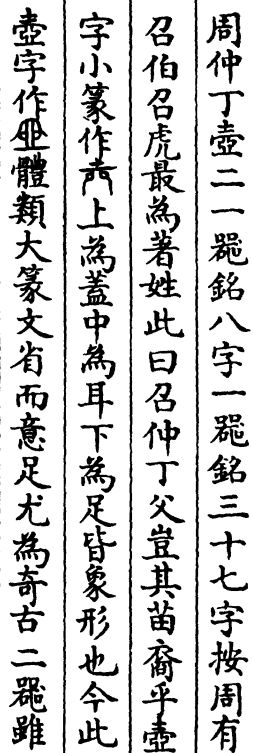 周仲丁壺二一器銘八字一器銘三十七字按周有
召伯召虎最為著姓此曰召仲丁父豈其苗裔乎壺
字小篆作上為蓋中為耳下為足皆象形也今此
壺字作體類大篆文省而意足尤為奇古二器雖